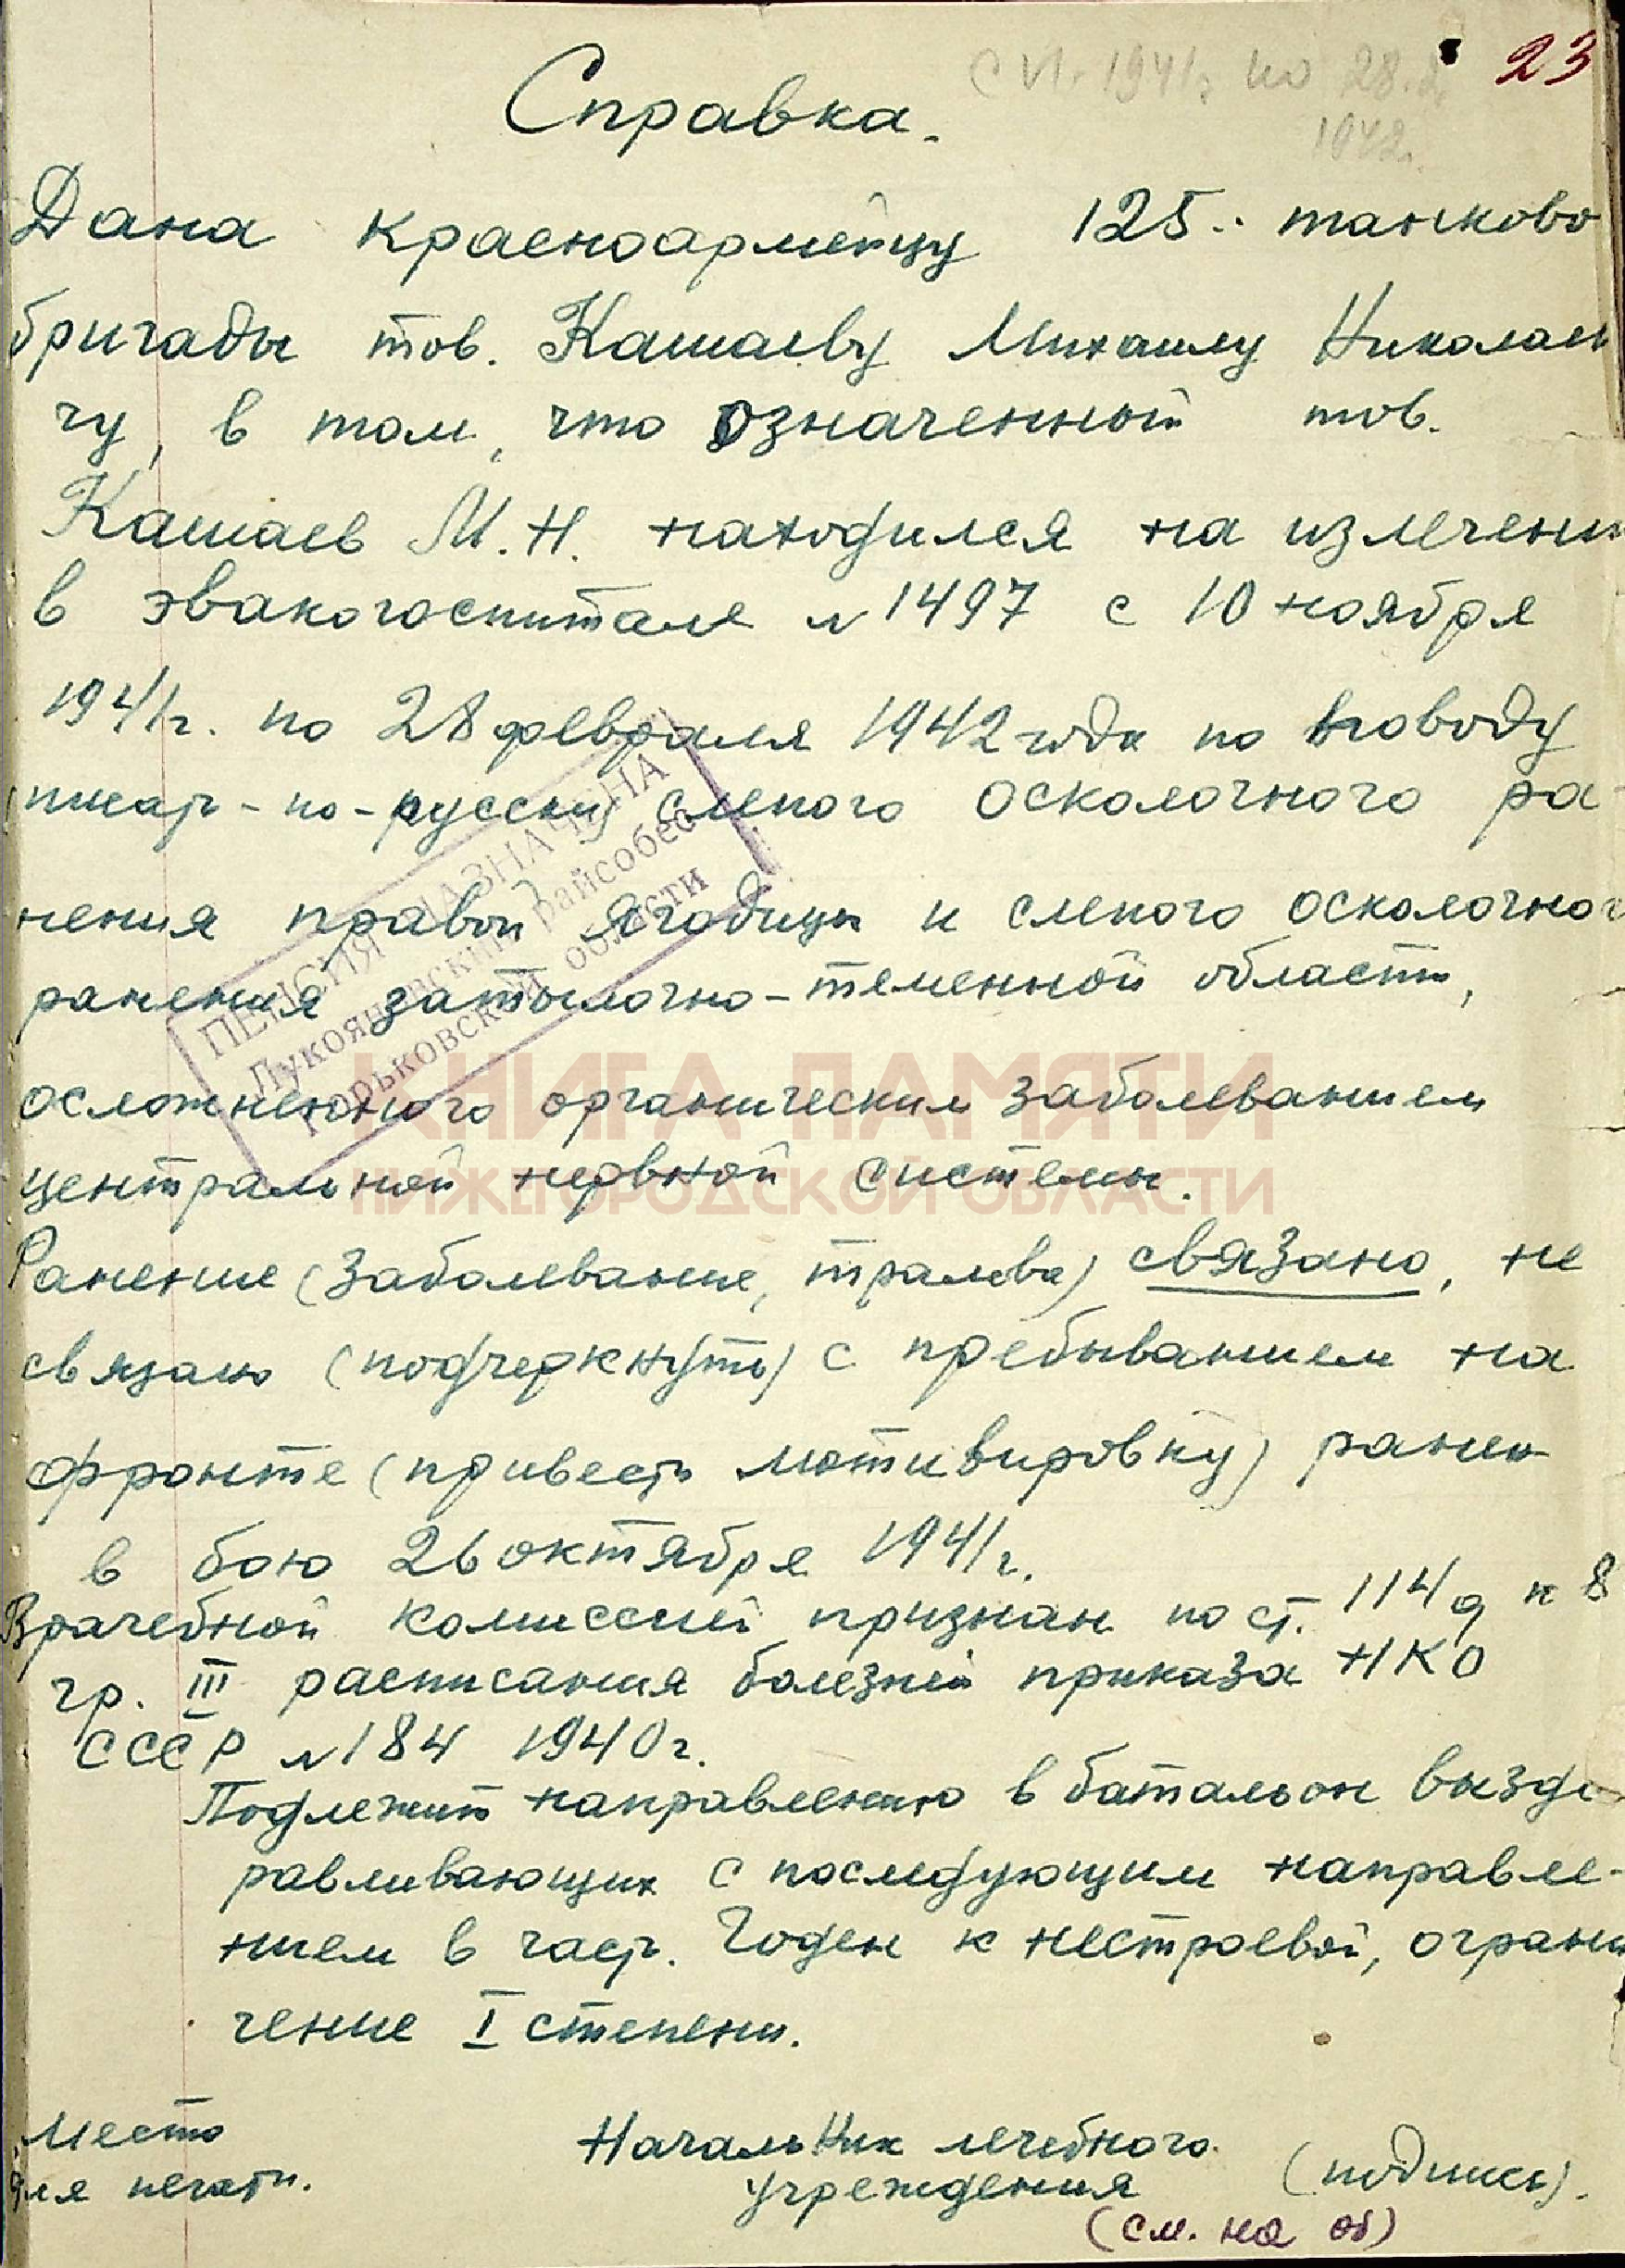 23
с VI. 1941г по 28.2.
1942г.
Справка.
Дана красноармейцу 125.. танково
бригады тов. Кашаеву Михаилу Николаеви
чу, в том, что означенный тов.
Кашаев М.Н. находился на излечени
в эвакогоспитале № 1497 с 10 ноября
1941г. по 28 февраля 1942 года по поводу
(писать-по-русски) слепого осколочного ра-
нения правой ягодицы и слепого осколочног
ранения затылочно-теменной области,
осложненного органическим заболеванием
центральной нервной системы.
Ранение (заболевание, травма) связано, не
связано (подчеркнуть) с пребыванием на
фронте (привесть мотивировку) ранен
в бою 26 октября 1941г.
Врачебной комиссией признан по ст. 114 д и 8
гр. III расписания болезней приказа НКО
СССР № 184 1940г.
Подлежит направлению в батальон выздо
равливающих с последующим направле-
нием в часть. Годен к нестроевой, ограни
чение I степени.
Место
для печати.
Начальник лечебного
учреждения (подпись).
(см. на об)
ПЕНСИЯ НАЗНАЧЕНА
Лукояновский райсобес
Горьковской области
КНИГА ПАМЯТИ
НИЖЕГОРОДСКОЙ ОБЛАСТИ